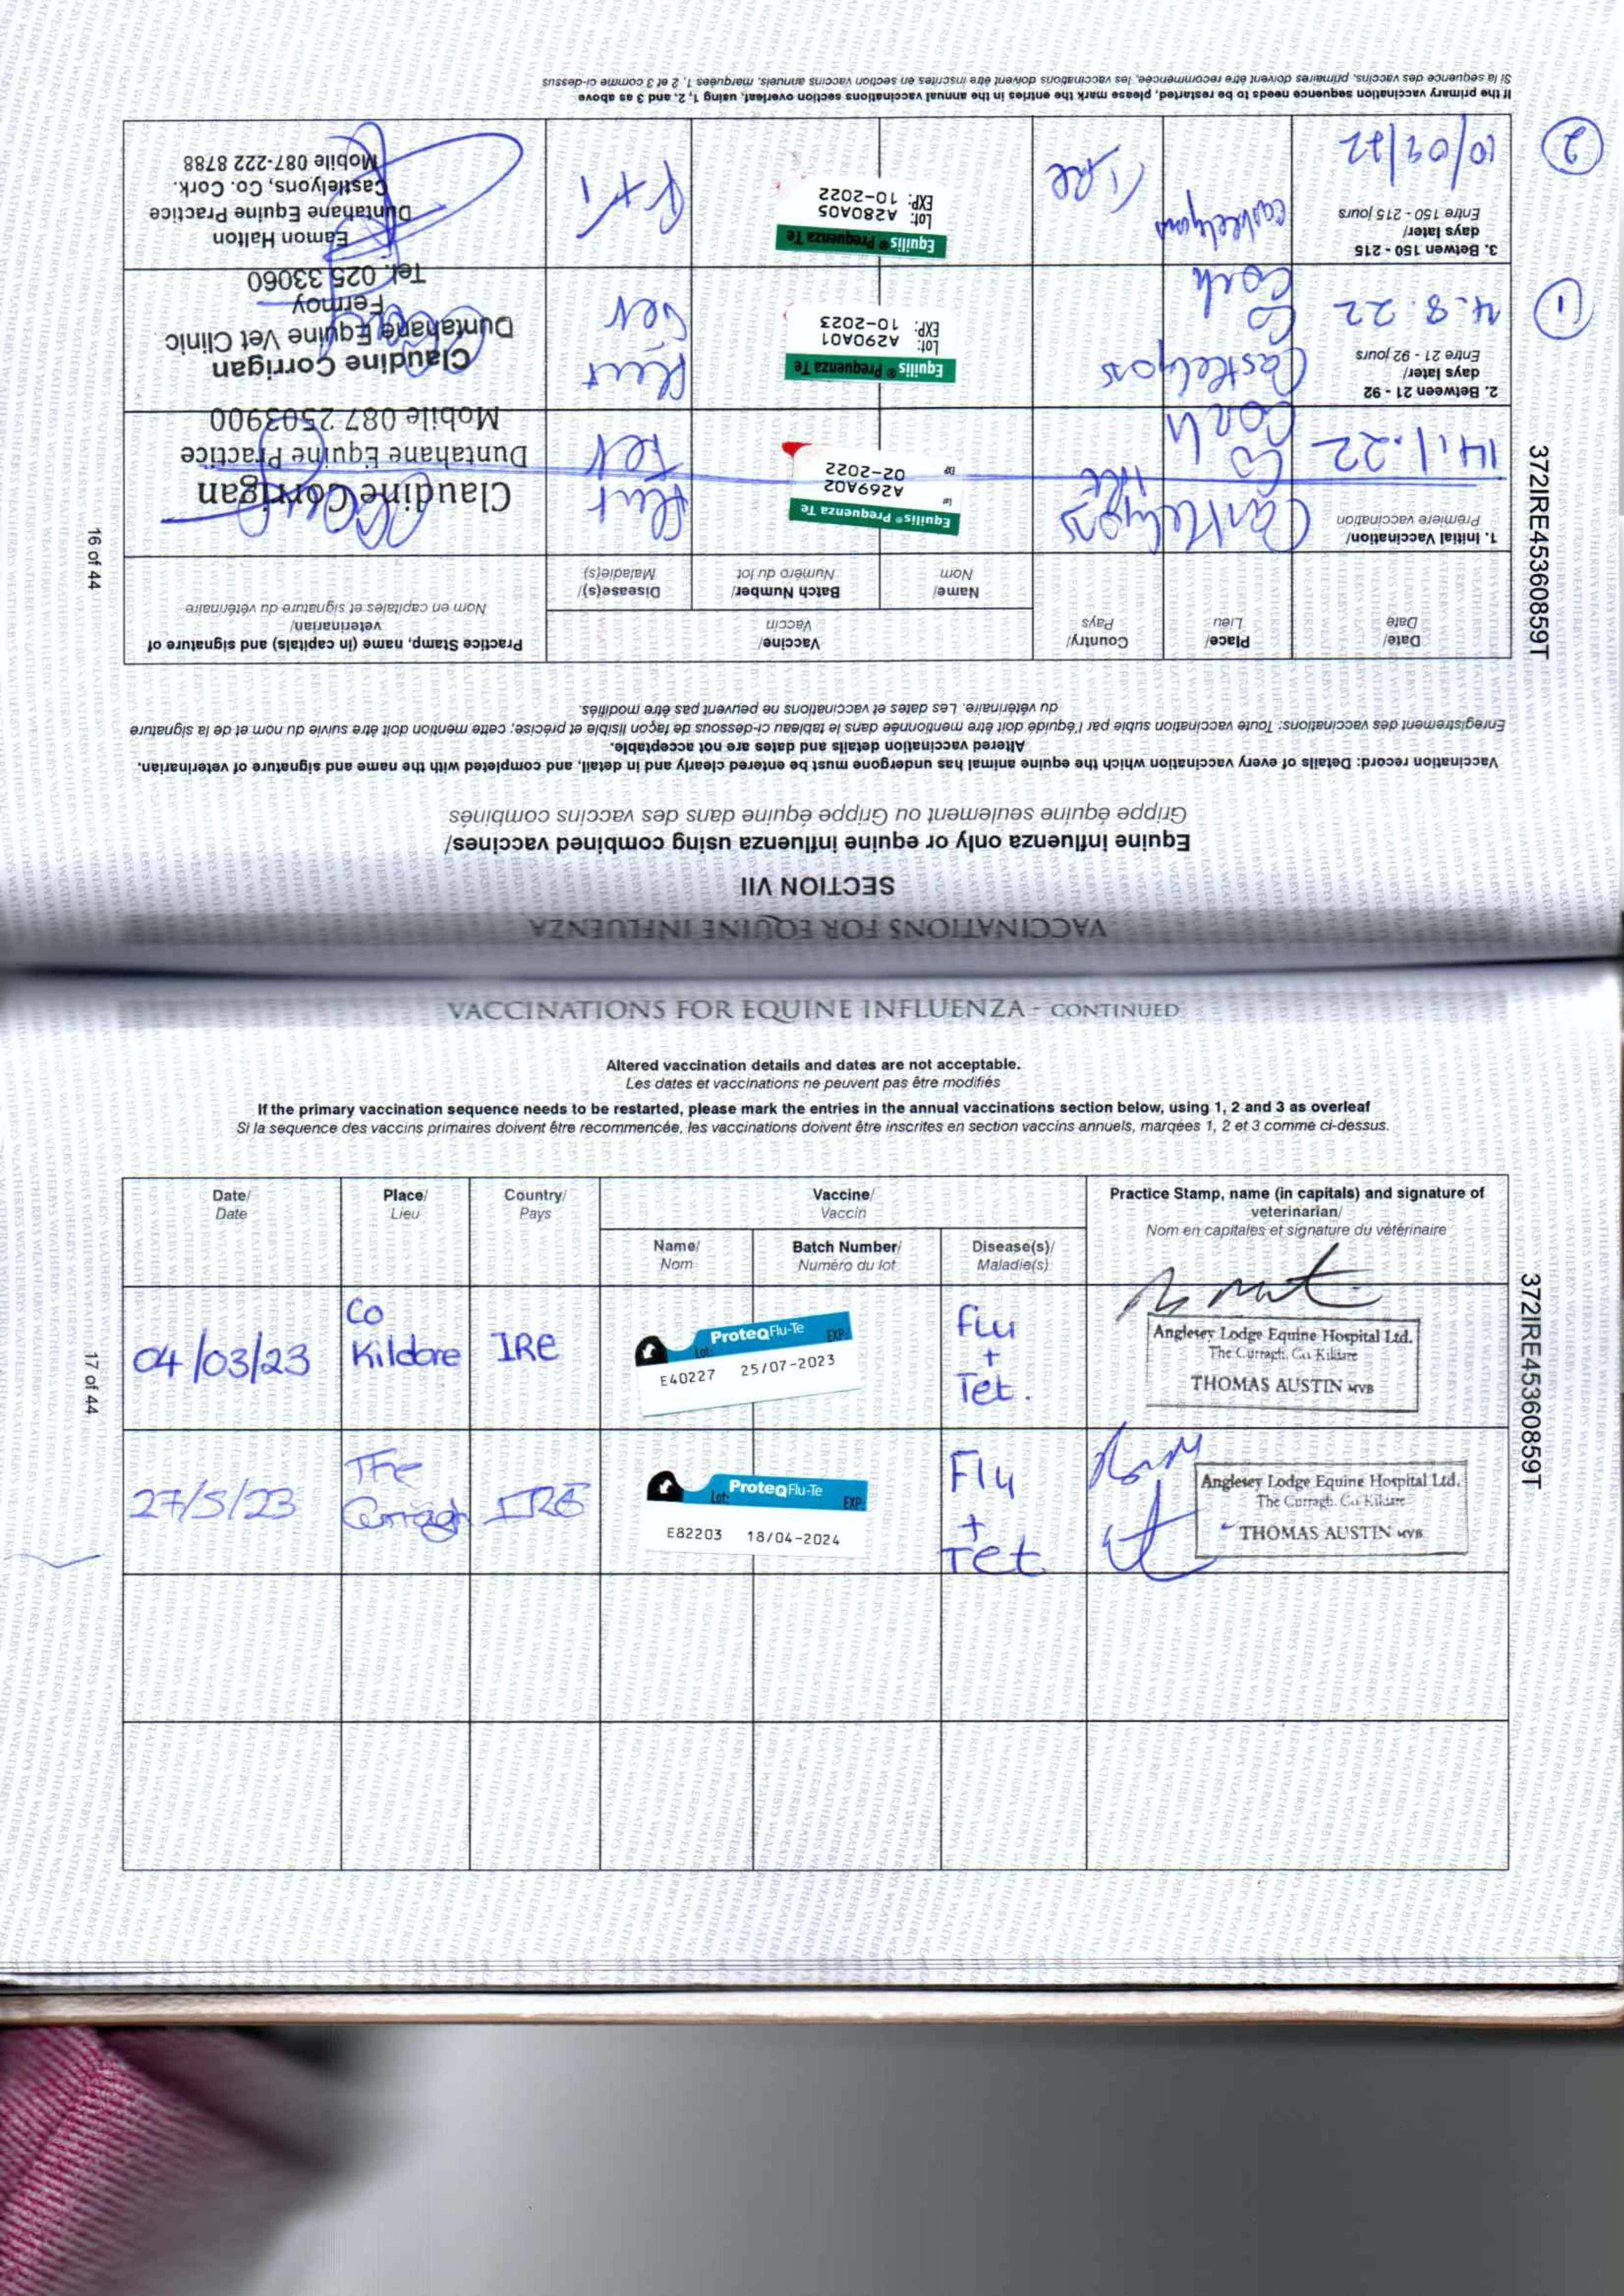 VACCINATIONS FOR EQUINE INFLUENZA
SECTION VII
Equine influenza only or equine influenza using combined vaccines/
Grippe équine seulement ou Grippe équine dans des vaccins combinés
Vaccination record: Details of every vaccination which the equine animal has undergone must be entered clearly and in detail, and completed with the name and signature of veterinarian.
Altered vaccination details and dates are not acceptable.
Enregistrement des vaccinations: Toute vaccination subie par l'équidé doit être mentionnée dans le tableau ci-dessous de façon lisible et précise; cette mention doit être suivie du nom et de la signature
du vétérinaire. Les dates et vaccinations ne peuvent pas être modifiés.
Date/
Date
Place/
Lieu
Country/
Pays
Vaccine/
Vaccin
Practice Stamp, name (in capitals) and signature of
veterinarian/
Nom en capitales et signature du vétérinaire
Name/
Nom
Batch Number/
Numéro du lot
Disease(s)/
Maladie(s)
1. Initial Vaccination/
Première vaccination
14.1.22
Castlelyons
Co
Cork
IRE
Equilis® Prequenza Te
Lot
A269A02
EXP
02-2022
Flu+
Tet
Claudine Corrigan
Duntahane Equine Practice
Mobile 087 2503900
2. Between 21 - 92
days later/
Entre 21 - 92 jours
4.8.22
Castlelyons
Co
Cork
Equilis® Prequenza Te
Lot: A290A01
EXP: 10-2023
Flu+
Tet
Claudine Corrigan
Duntahane Equine Vet Clinic
Fermoy
Tel: 025 33060
1
3. Betwen 150 - 215
days later/
Entre 150 - 215 jours
10/09/22
Castlelyons
IRE
Equilis® Prequenza Te
Lot: A280A05
EXP: 10-2022
F+T
Eamon Halton
Duntahane Equine Practice
Castlelyons, Co. Cork.
Mobile 087-222 8788
2
If the primary vaccination sequence needs to be restarted, please mark the entries in the annual vaccinations section overleaf, using 1, 2, and 3 as above
Si la séquence des vaccins, primaires doivent être recommencée, les vaccinations doivent être inscrites en section vaccins annuels, marquées 1, 2 et 3 comme ci-dessus
16 of 44
372IRE45360859T
VACCINATIONS FOR EQUINE INFLUENZA - CONTINUED
Altered vaccination details and dates are not acceptable.
Les dates et vaccinations ne peuvent pas être modifiés
If the primary vaccination sequence needs to be restarted, please mark the entries in the annual vaccinations section below, using 1, 2 and 3 as overleaf
Si la sequence des vaccins primaires doivent être recommencée, les vaccinations doivent être inscrites en section vaccins annuels, marqées 1, 2 et 3 comme ci-dessus.
Date/
Date
Place/
Lieu
Country/
Pays
Vaccine/
Vaccin
Practice Stamp, name (in capitals) and signature of
veterinarian/
Nom en capitales et signature du vétérinaire
Name/
Nom
Batch Number/
Numéro du lot
Disease(s)/
Maladie(s)
04/03/23
Co
Kildare
IRE
ProteqFlu-Te
Lot: EXP:
E40227 25/07-2023
Flu
+
Tet.
Anglesey Lodge Equine Hospital Ltd.
The Curragh. Co. Kildare
THOMAS AUSTIN MVB
27/5/23
The
Curragh
IRE
ProteqFlu-Te
Lot: EXP:
E82203 18/04-2024
Flu
+
Tet
Anglesey Lodge Equine Hospital Ltd.
The Curragh. Co. Kildare
THOMAS AUSTIN MVB
17 of 44
372IRE45360859T